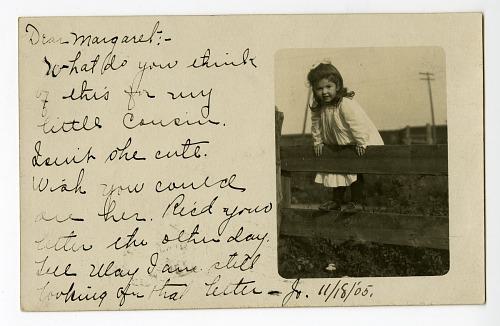 Dear Margaret:-
What do you think
of this for my
little cousin.
Isn't she cute.
Wish you could
see her. Rec'd your
letter the other day.
Tell May I am still
looking for that letter - Jo. 11/18/05.